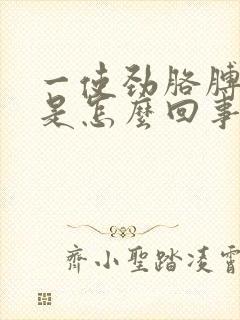 一使劲胳膊
是怎麼回事
齐小聖踏凌霄